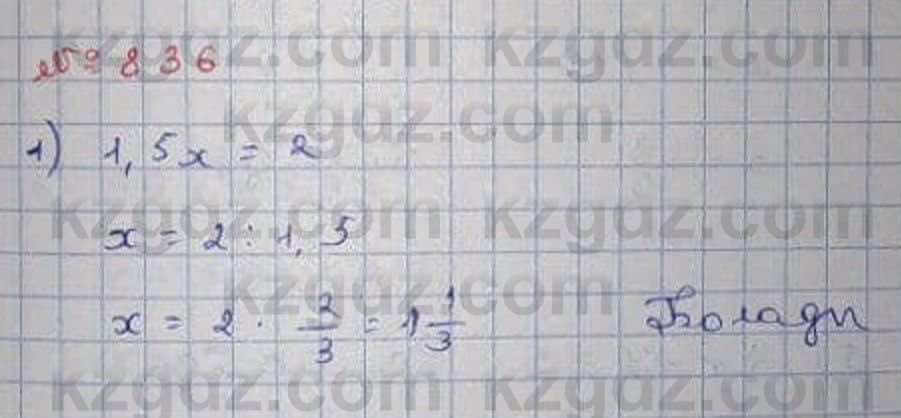 kzgdz.com kzgdz.com
№ 836
kzgdz.com
1) 1,5x = 2
kzgdz.com kzgdz.com
x = 2 : 1,5
kzgdz.com
x = 2 · 2/3 = 1 1/3 Болады
kzgdz.com kzgdz.com